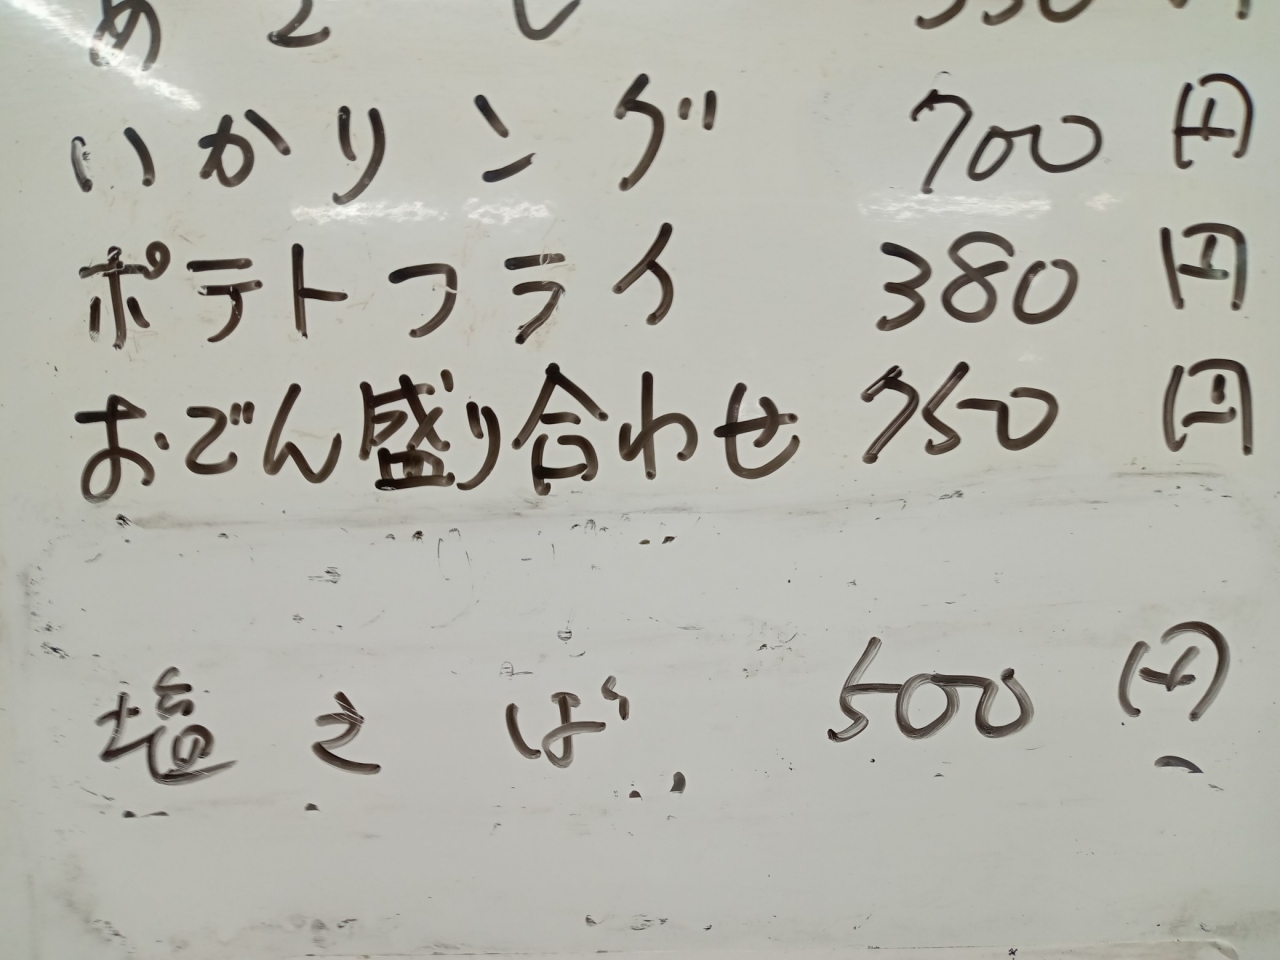 いかリング 700円
ポテトフライ 380円
おでん盛り合わせ 750円
塩さば 500円